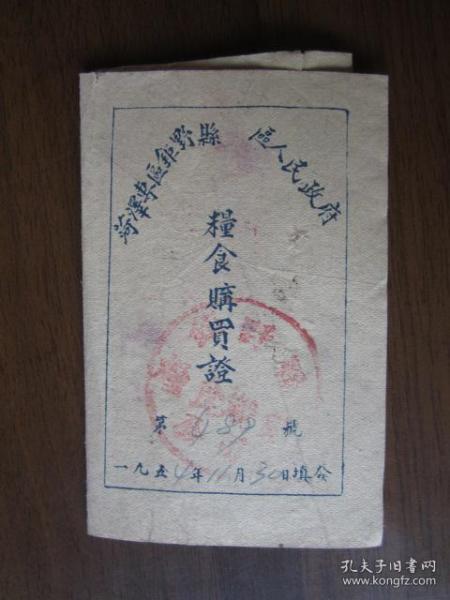 菏澤專區鉅野縣 區人民政府
糧食購買證
第489號
一九五4年11月30日填發
孔夫子旧书网
www.kongfz.com